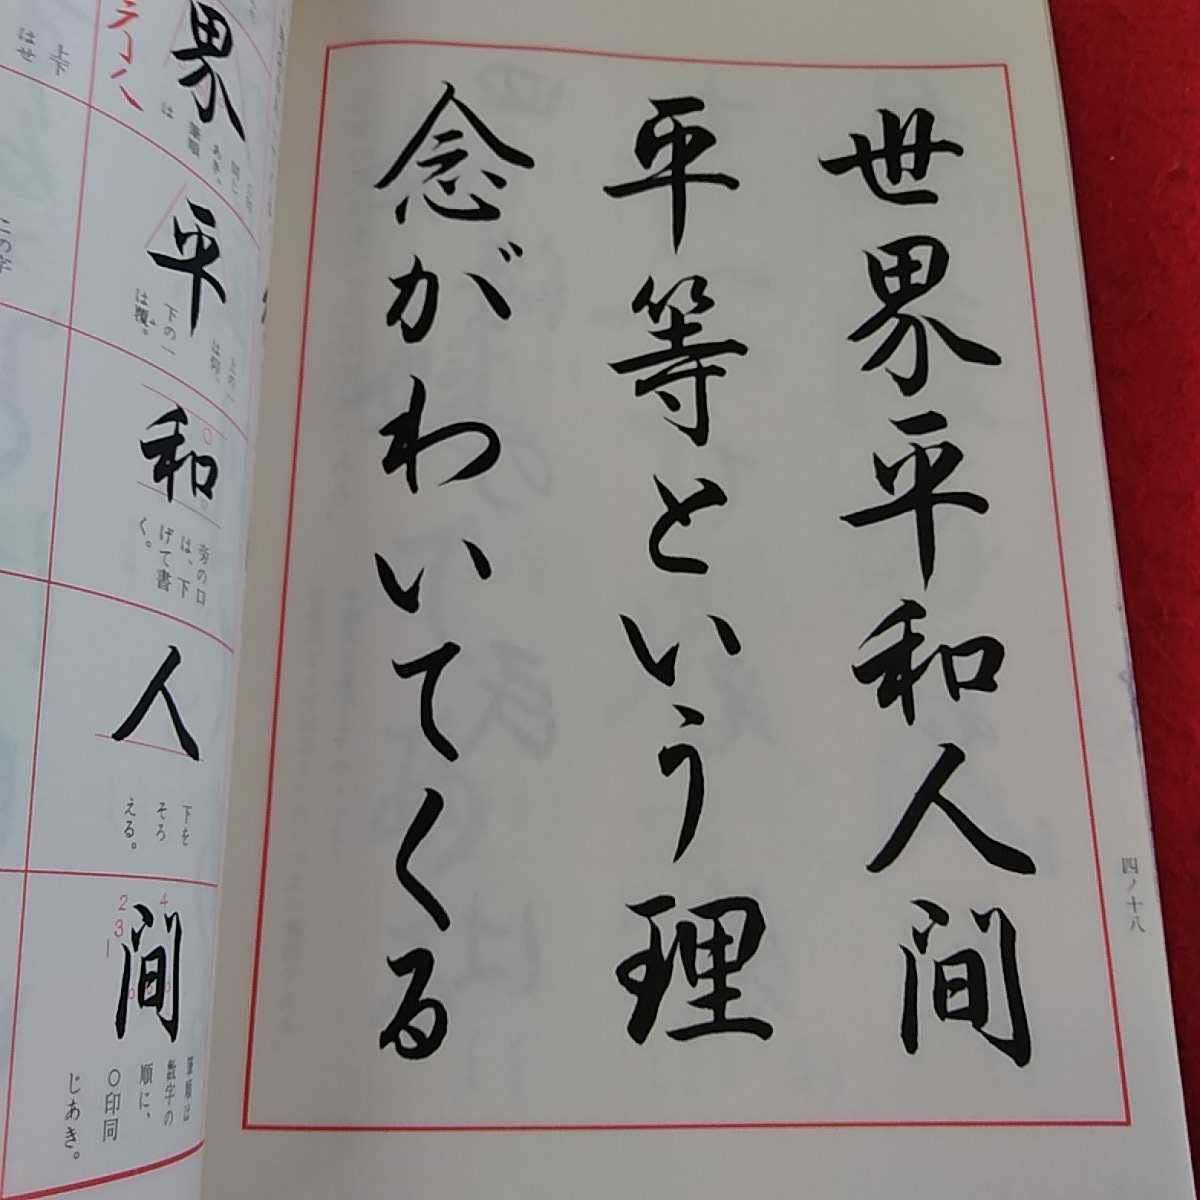 世界平和人間
平等という理
念がわいてくる
四ノ十八
界
筆順
は
平
下の一
は覆。
和
旁の口
は、下
げて書
く。
人
下を
そろ
える。
間
2
3
4
筆順は
数字の
順に、
○印同
じあき。
二の字